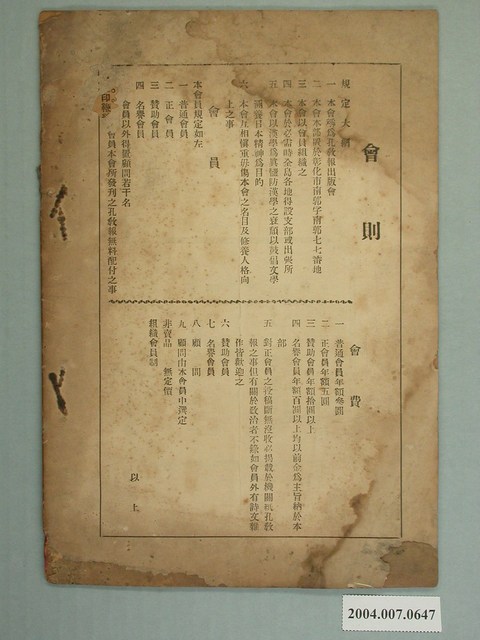 會則
規定大綱
一 本會稱爲孔教報出版會
二 本會本部置於彰化市南郭字南郭七七番地
三 本會以會員組織之
四 本會於必需時全島各地得設支部或出張所
五 本會以漢學爲眞髓防漢學之衰頹以鼓倡文學
涵養日本精神爲目的
六 本會互相愼重毋傷本會之名目及修養人格向
上之事
會員
本會員規定如左
一 普通會員
二 正會員
三 贊助會員
四 名譽會員
會員以外得置顧問若干名
會員本會所發刊之孔教報無料配付之事
會費
一 普通會員年額參圓
二 正會員年額五圓
三 贊助會員年額拾圓以上
四 名譽會員年額百圓以上均以前金爲主旨納於本
部
五 對正會員之投稿斷無沒收必揭載於機關紙孔教
報之事但有關於政治者不錄如會員外有詩文雜
作皆歡迎之
六 贊助會員
七 名譽會員
八 顧問
九 顧問由本會員中選定
非賣品 無定價
組織會員制
以上
2004.007.0647